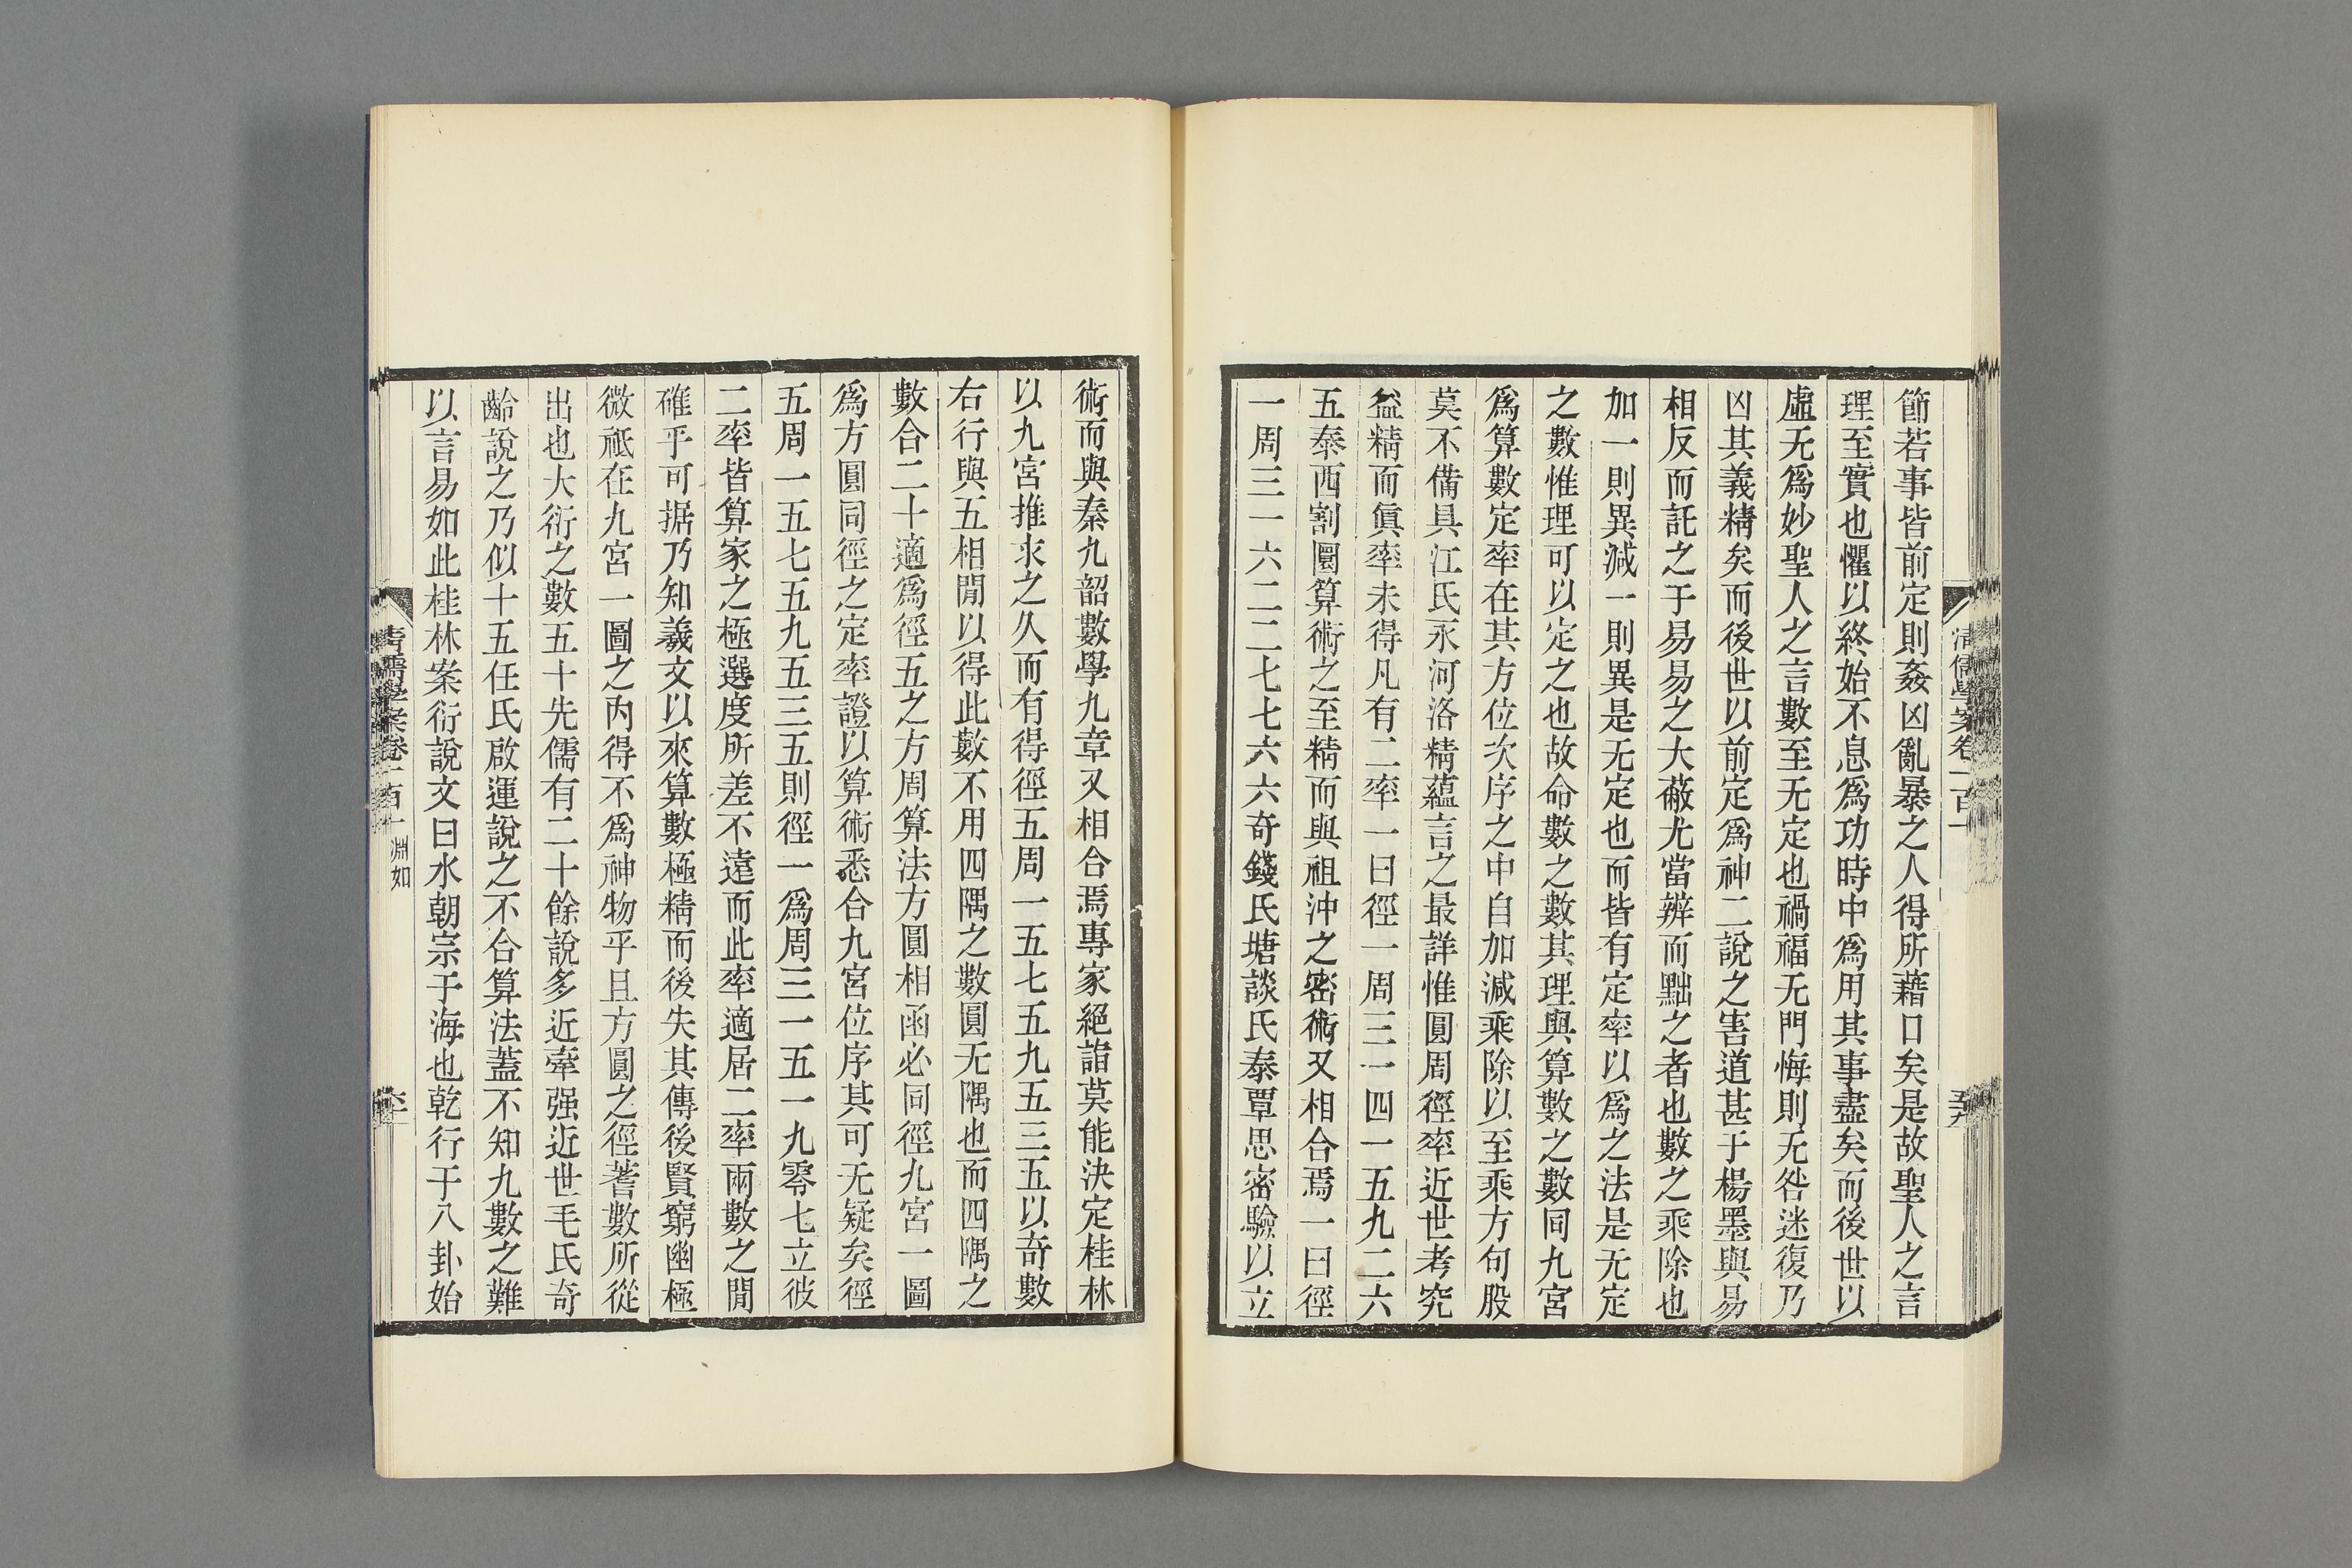 清儒學案卷一百一
節若事皆前定則姦凶亂暴之人得所藉口矣是故聖人之言
理至實也懼以終始不息爲功時中爲用其事盡矣而後世以
虛无爲妙聖人之言數至无定也禍福无門悔則无咎迷復乃
凶其義精矣而後世以前定爲神二說之害道甚于楊墨與易
相反而託之于易易之大蔽尤當辨而黜之者也數之乘除也
加一則異減一則異是无定也而皆有定率以爲之法是无定
之數惟理可以定之也故命數之數其理與算數之數同九宮
爲算數定率在其方位次序之中自加減乘除以至乘方句股
莫不備具江氏永河洛精蘊言之最詳惟圓周徑率近世考究
益精而眞率未得凡有二率一曰徑一周三一四一五九二六
五泰西割圜算術之至精而與祖沖之密術又相合焉一曰徑
一周三一六二二七七六六奇錢氏塘談氏泰覃思密驗以立
術而與秦九韶數學九章又相合焉專家絕詣莫能決定桂林
以九宮推求之久而有得徑五周一五七五九五三五以奇數
右行與五相閒以得此數不用四隅之數圓无隅也而四隅之
數合二十適爲徑五之方周算法方圓相函必同徑九宮一圖
爲方圓同徑之定率證以算術悉合九宮位序其可无疑矣徑
五周一五七五九五三五則徑一爲周三一五一九零七立彼
二率皆算家之極選度所差不遠而此率適居二率兩數之閒
碓乎可據乃知羲文以來算數極精而後失其傳後賢窮幽極
微祗在九宮一圖之內得不爲神物乎且方圓之徑蓍數所從
出也大衍之數五十先儒有二十餘說多近牽强近世毛氏奇
齡說之乃似十五任氏啟運說之不合算法蓋不知九數之難
以言易如此桂林案衍說文曰水朝宗于海也乾行于八卦始
清儒學案卷一百一 淵如